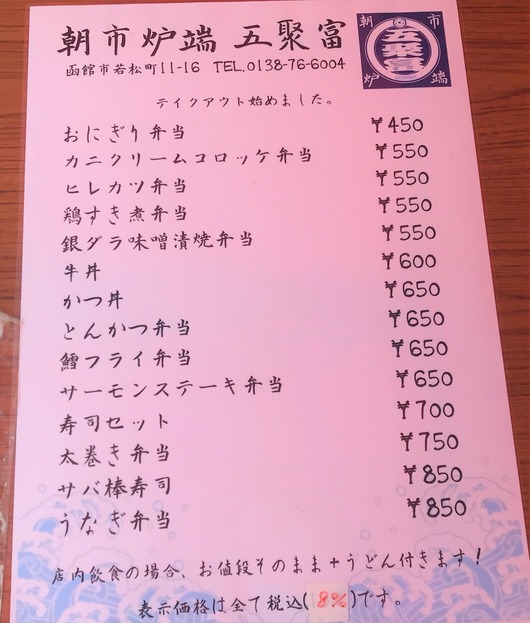 朝市炉端 五聚富
函館市若松町11-16 TEL.0138-76-6004
朝 市
五聚富
炉 端
テイクアウト始めました。
おにぎり弁当 ¥450
カニクリームコロッケ弁当 ¥550
ヒレカツ弁当 ¥550
鶏すき煮弁当 ¥550
銀ダラ味噌漬焼弁当 ¥550
牛丼 ¥600
かつ丼 ¥650
とんかつ弁当 ¥650
鱈フライ弁当 ¥650
サーモンステーキ弁当 ¥650
寿司セット ¥700
太巻き弁当 ¥750
サバ棒寿司 ¥850
うなぎ弁当 ¥850
店内飲食の場合、お値段そのまま+うどん付きます!
表示価格は全て税込(8%)です。